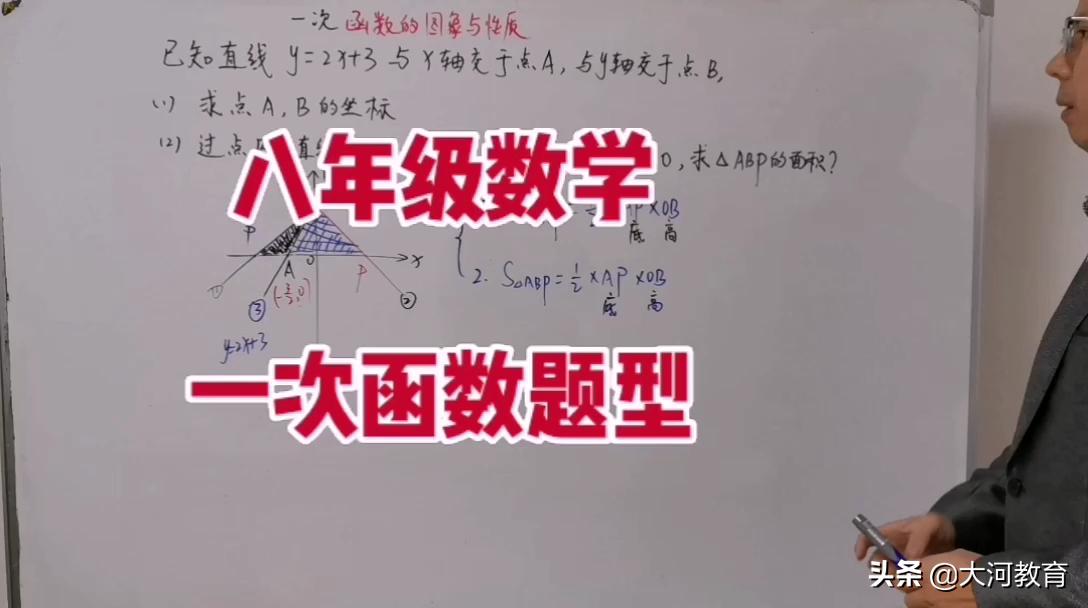 一次函数的图象与性质
已知直线 y=2x+3 与 x轴交于点A, 与y轴交于点B,
(1) 求点A, B的坐标
(2) 过点
0, 求△ABP的面积?
八年级数学
P
×OB
底 高
A
0
P
x
(-3/2,0)
①
②
③
2. S△ABP=1/2×AP×OB
底 高
y=2x+3
一次函数题型
头条 @大河教育